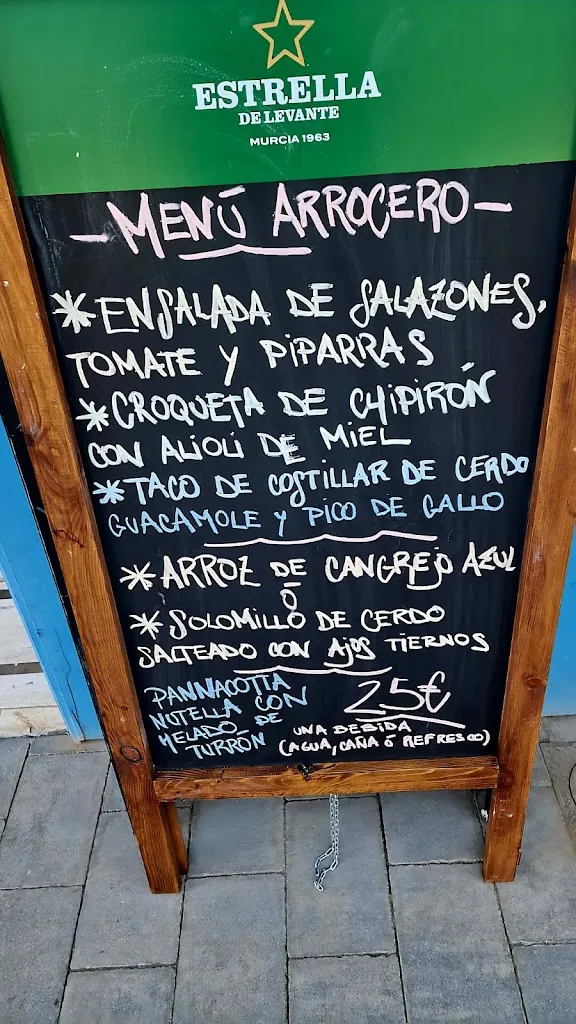 ESTRELLA
DE LEVANTE
MURCIA 1963
- MENÚ ARROCERO -
* ENSALADA DE SALAZONES,
TOMATE Y PIPARRAS
* CROQUETA DE CHIPIRÓN
CON ALIOLI DE MIEL
* TACO DE COSTILLAR DE CERDO
GUACAMOLE Y PICO DE GALLO
* ARROZ DE CANGREJO AZUL
Ó
* SOLOMILLO DE CERDO
SALTEADO CON AJOS TIERNOS
PANNACOTTA
NUTELLA CON
MELADO DE
TURRÓN
25€
UNA BEBIDA
(AGUA, CAÑA Ó REFRESCO)